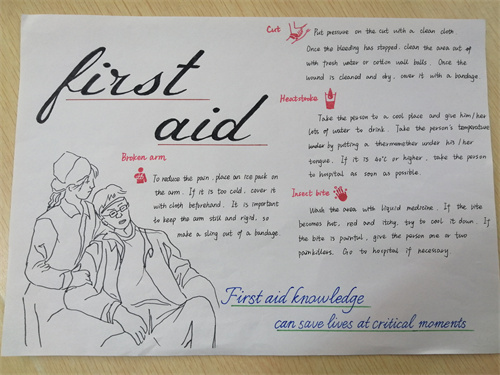 first
aid
Cut
Put pressure on the cut with a clean cloth
Once the bleeding has stopped, clean the area out up
with fresh water or cotton wool balls. Once the
wound is cleaned and dry, cover it with a bandage.
Heatstroke
Take the person to a cool place and give him/her
lots of water to drink. Take the person's temperature
under by putting a thermomether under his/her
tongue. If it is 40℃ or higher, take the person
to hospital as soon as possible.
Broken arm
To reduce the pain, place an ice pack on
the arm. If it is too cold, cover it
with cloth beforehand. It is important
to keep the arm still and rigid, so
make a sling out of a bandage.
Insect bite
Wash the area with liquid medicine. If the bite
becomes hot, red and itchy, try to cool it down. If
the bite is painful, give the person one or two
painkillers. Go to hospital if necessary.
First aid knowledge
can save lives at critical moments